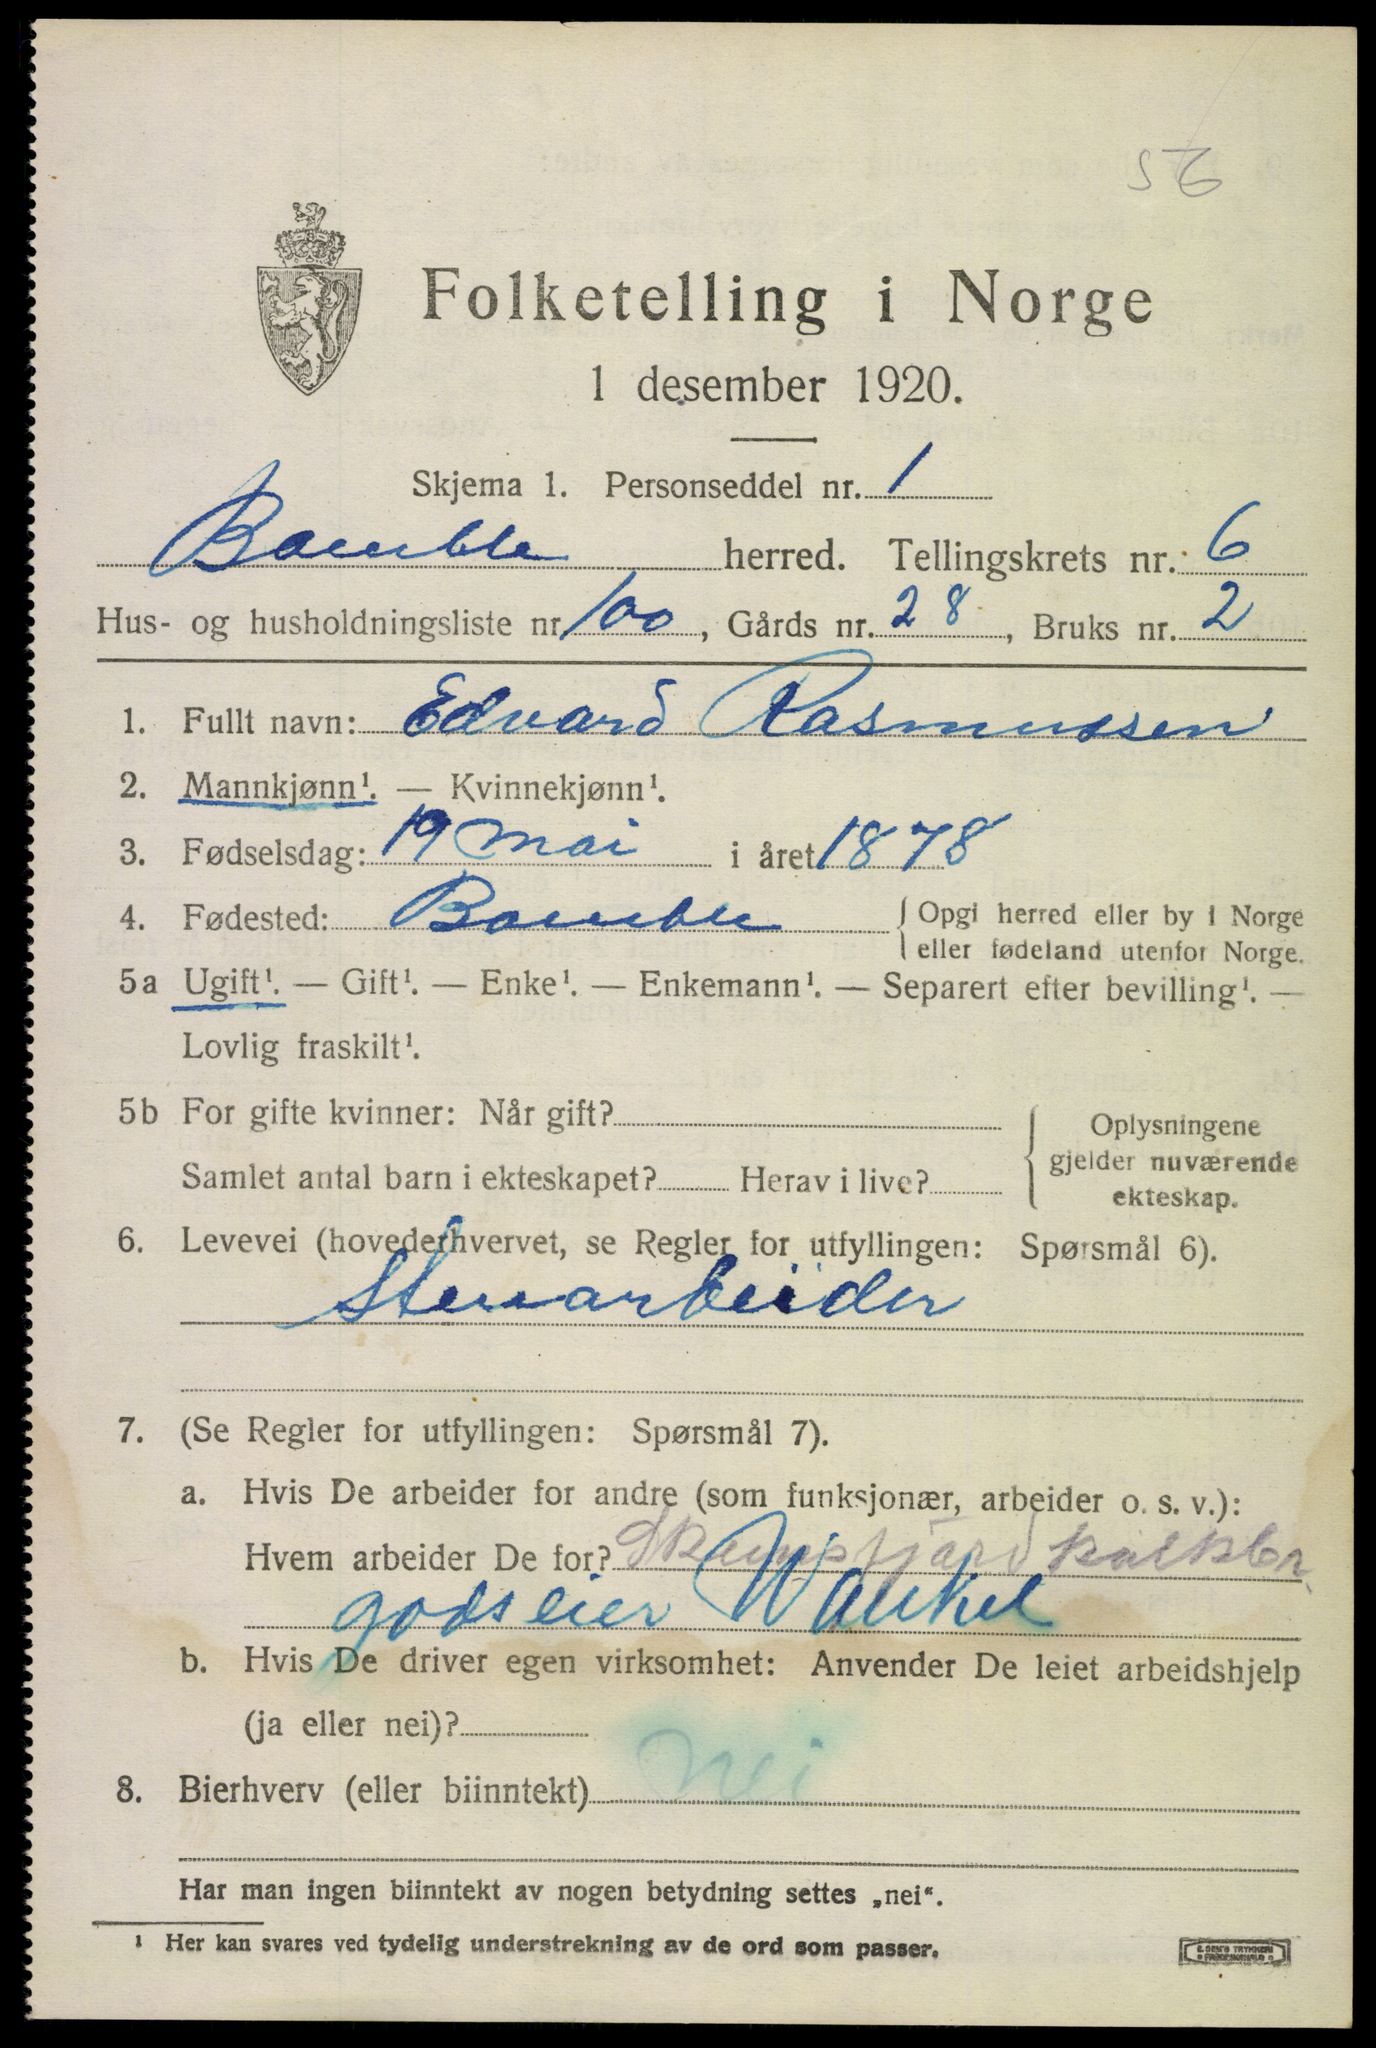 56
Folketelling i Norge
1 desember 1920.
Skjema 1. Personseddel nr. 1
Bamble herred. Tellingskrets nr. 6
Hus- og husholdningsliste nr. 100, Gårds nr. 28, Bruks nr. 2
1. Fullt navn: Edvard Rasmussen
2. Mannkjønn¹. — Kvinnekjønn¹.
3. Fødselsdag: 19 mai i året 1878
4. Fødested: Bamble { Opgi herred eller by i Norge
eller fødeland utenfor Norge.
5a Ugift¹. — Gift¹. — Enke¹. — Enkemann¹. — Separert efter bevilling¹. —
Lovlig fraskilt¹.
5b For gifte kvinner: Når gift?
Samlet antal barn i ekteskapet? Herav i live?
Oplysningene
gjelder nuværende
ekteskap.
6. Levevei (hovederhvervet, se Regler for utfyllingen: Spørsmål 6).
Stenarbeider
7. (Se Regler for utfyllingen: Spørsmål 7).
a. Hvis De arbeider for andre (som funksjonær, arbeider o. s. v.):
Hvem arbeider De for? kalkbr.
godseier
b. Hvis De driver egen virksomhet: Anvender De leiet arbeidshjelp
(ja eller nei)?
8. Bierhverv (eller biinntekt) Nei
Har man ingen biinntekt av nogen betydning settes „nei“.
¹ Her kan svares ved tydelig understrekning av de ord som passer.